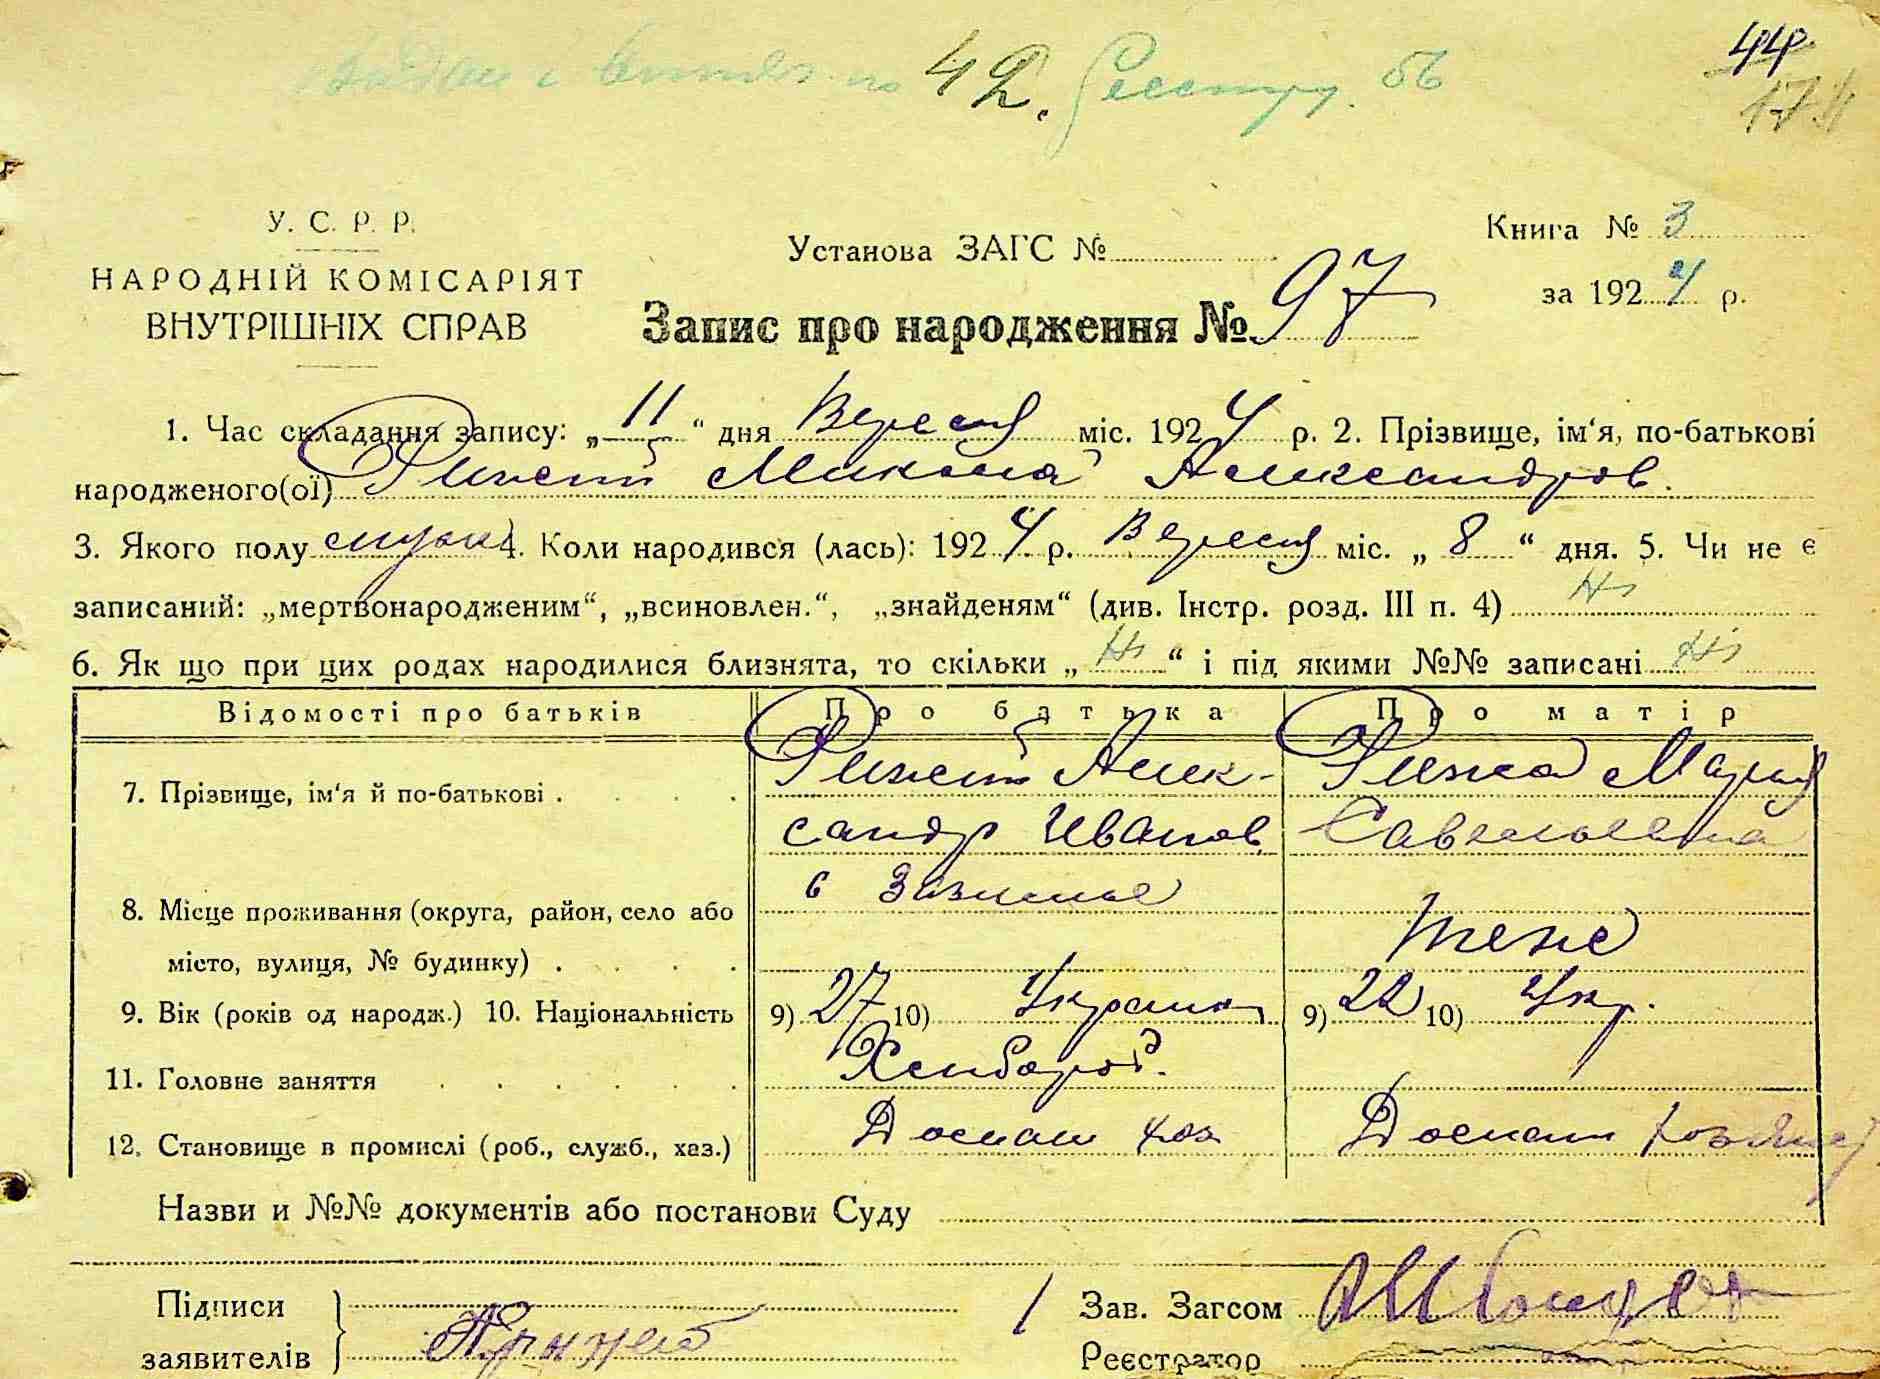 42. Реестру. 56
44
У. С. Р. Р.
НАРОДНІЙ КОМІСАРІЯТ
ВНУТРІШНІХ СПРАВ
Установа ЗАГС №
Книга № 3
за 1924 р.
Запис про народження № 97
1. Час складання запису: „11“ дня Вересня міс. 1924 р. 2. Прізвище, ім‘я, по-батькові
народженого(ої) Рижий Микола Александров.
3. Якого полу муж 4. Коли народився (лась): 1924 р. Вересня міс. „8“ дня. 5. Чи не є
записаний: „мертвонародженим“, „всиновлен.“, „знайденям“ (див. Інстр. розд. III п. 4) Ні
6. Як що при цих родах народилися близнята, то скільки „Ні“ і під якими №№ записані Ні
Відомості про батьків Про батька Про матір
7. Прізвище, ім‘я й по-батькові . Рижий Алек- Рижа Мария
сандр Иванов Савельевна
8. Місце проживання (округа, район, село або
місто, вулиця, № будинку) . тоже
9. Вік (років од народж.) 10. Національність 9) 27 10) 9) 22 10) Укр.
11. Головне заняття Хлебороб.
12. Становище в промислі (роб., служб., хаз.)
Назви и №№ документів або постанови Суду
Підписи
заявителів
Зав. Загсом
Реєстратор